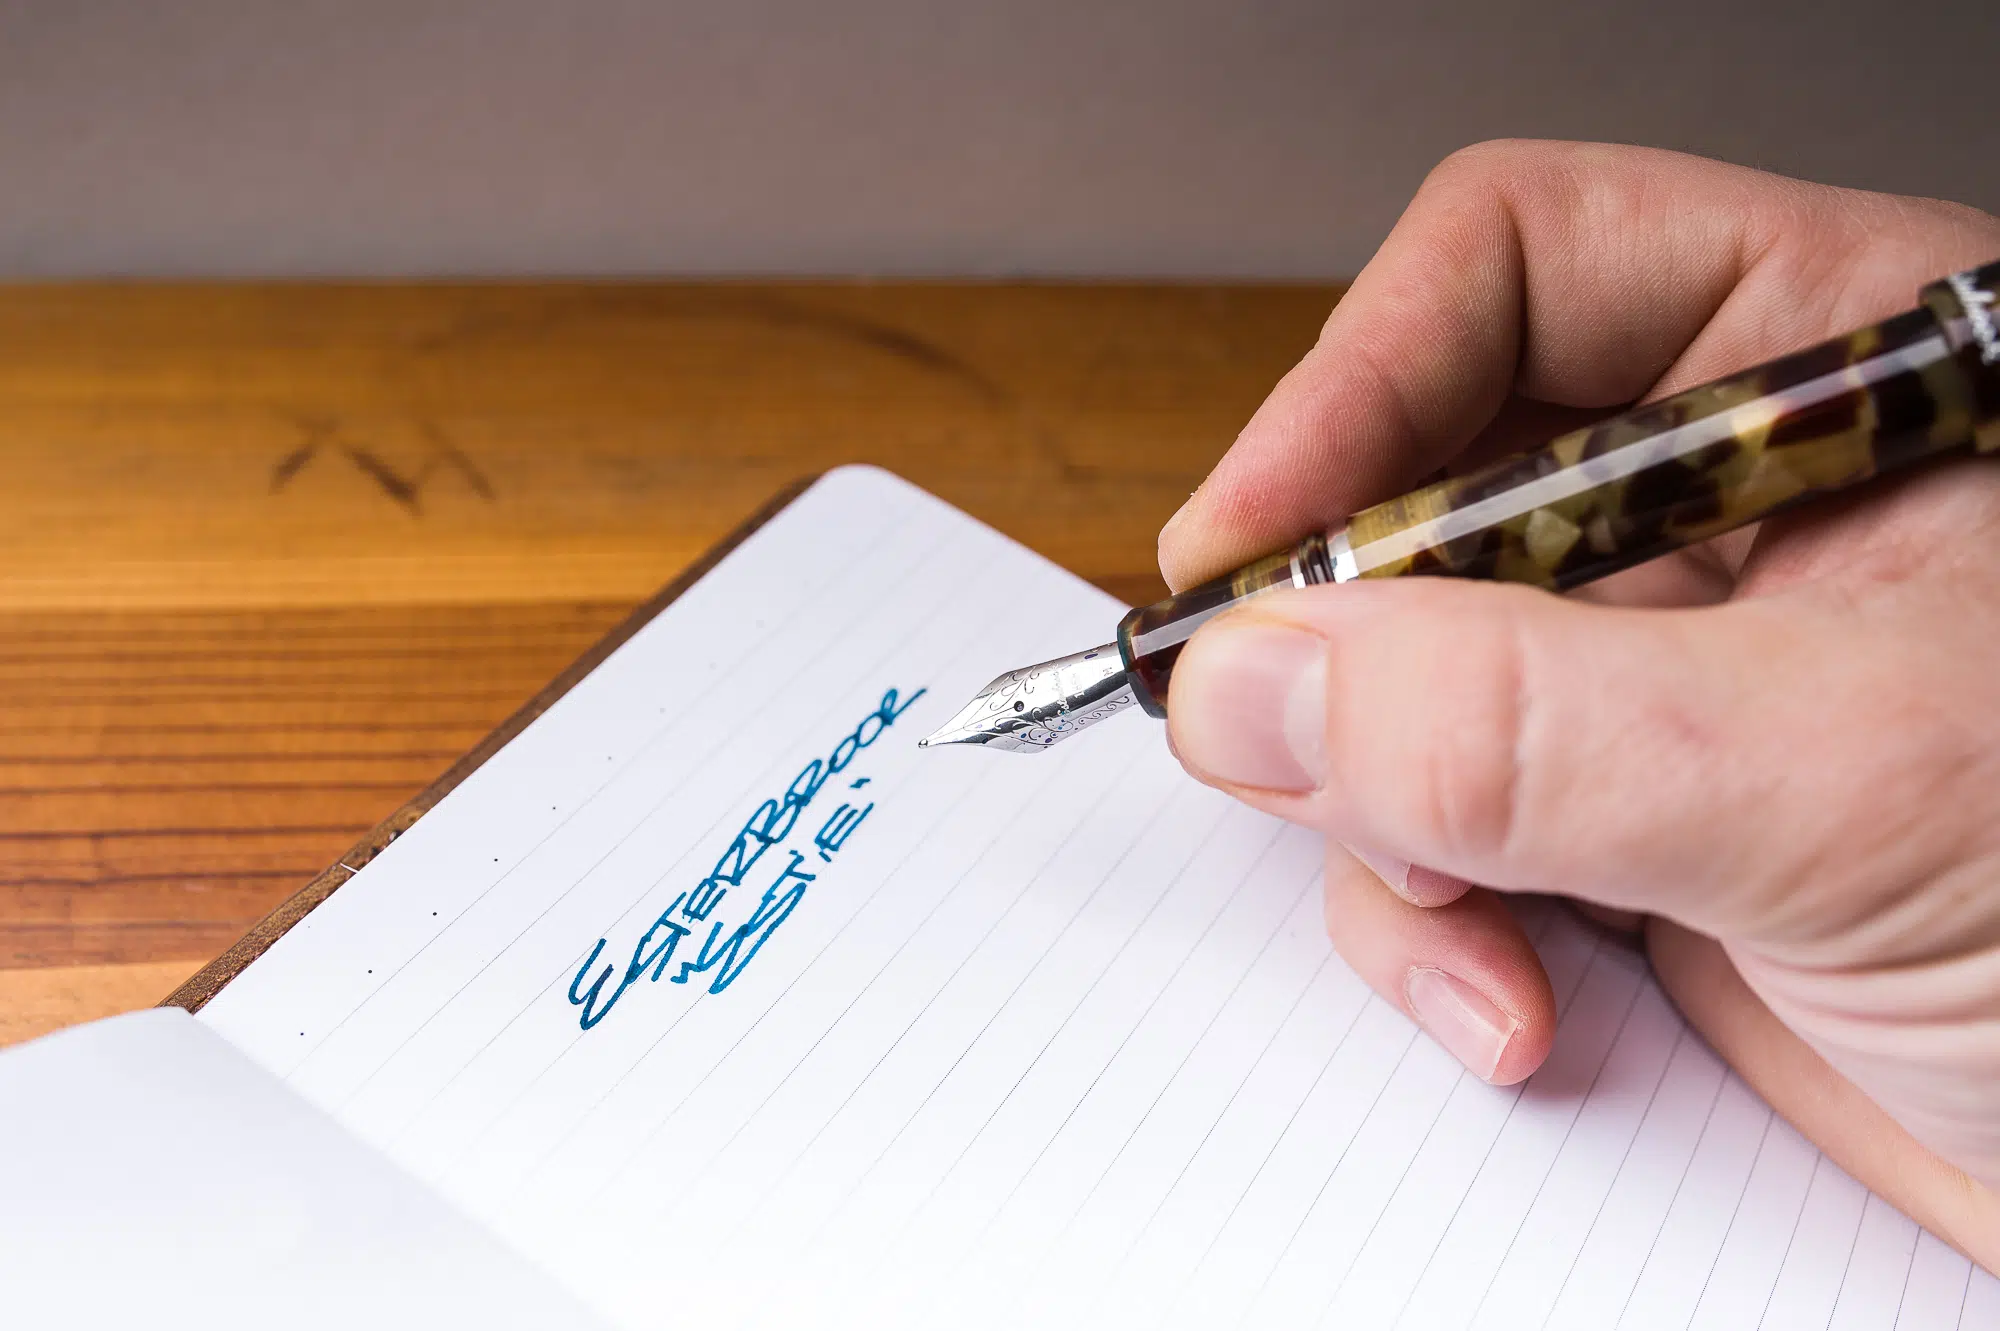 ESTERBROOK
"ESTIE"